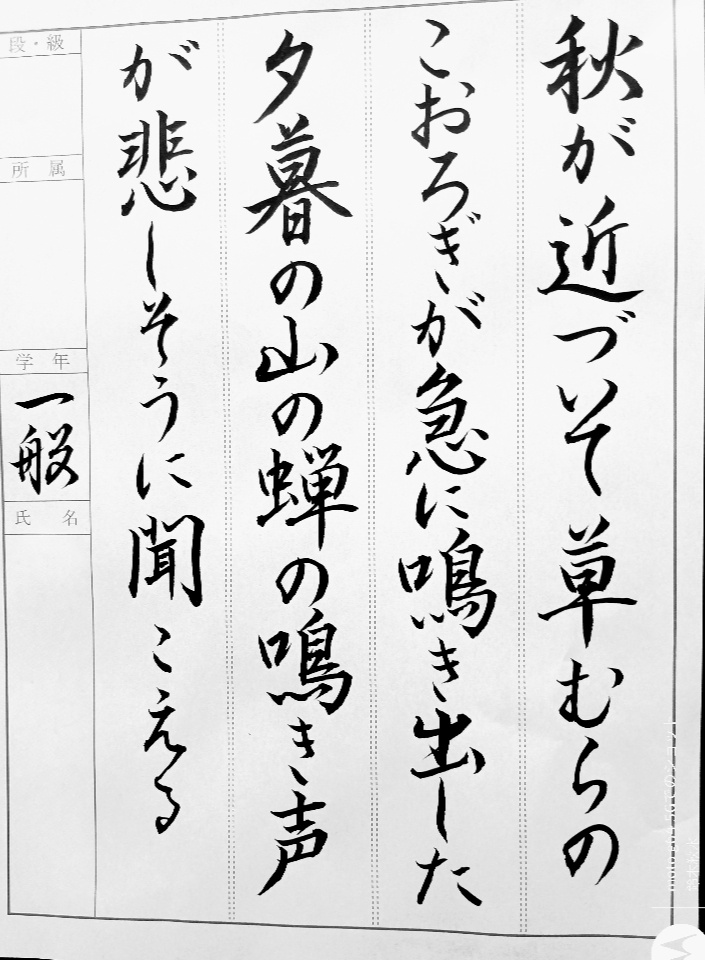 秋が近づいて草むらの
こおろぎが急に鳴き出した
夕暮の山の蝉の鳴き声
が悲しそうに聞こえる
段・級
所属
学年
一般
氏名